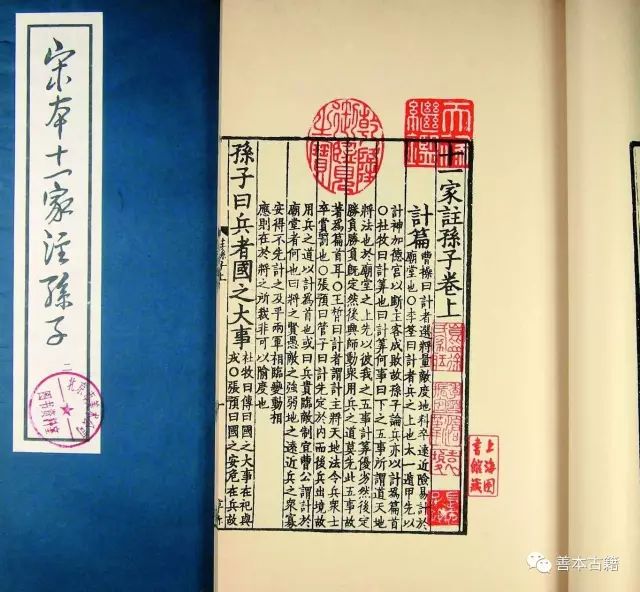 宋本十一家注孫子
图书资料室
乾隆御覽之寶
天祿繼鑑
十一家註孫子卷上
計篇
曹操曰計者選將量敵度地料卒遠近險易計於
廟堂也○李筌曰計者兵之上也太一遁甲先以
計神加德宮以斷主客成敗故孫子論兵亦以計為篇首
○杜牧曰計算也曰計算何事曰下之五事所謂道天地
將法也於廟堂之上先以彼我之五事計算優劣然後定
勝負勝負既定然後興師動眾用兵之道莫先此五事故
著為篇首耳○王晳曰計者謂計主將天地法令兵眾士
卒賞罰也○張預曰管子曰計先定於內而後兵出境故
用兵之道以計為首也或曰兵貴臨敵制宜曹公謂計於
廟堂者何也曰將之賢愚敵之強弱地之遠近兵之眾寡
安得不先計之及乎兩軍相臨變動相
應則在於將之所裁非可以隃度也
孫子曰兵者國之大事
杜牧曰傳曰國之大事在祀與
戎○張預曰國之安危在兵故
上海图
書館藏
善本古籍